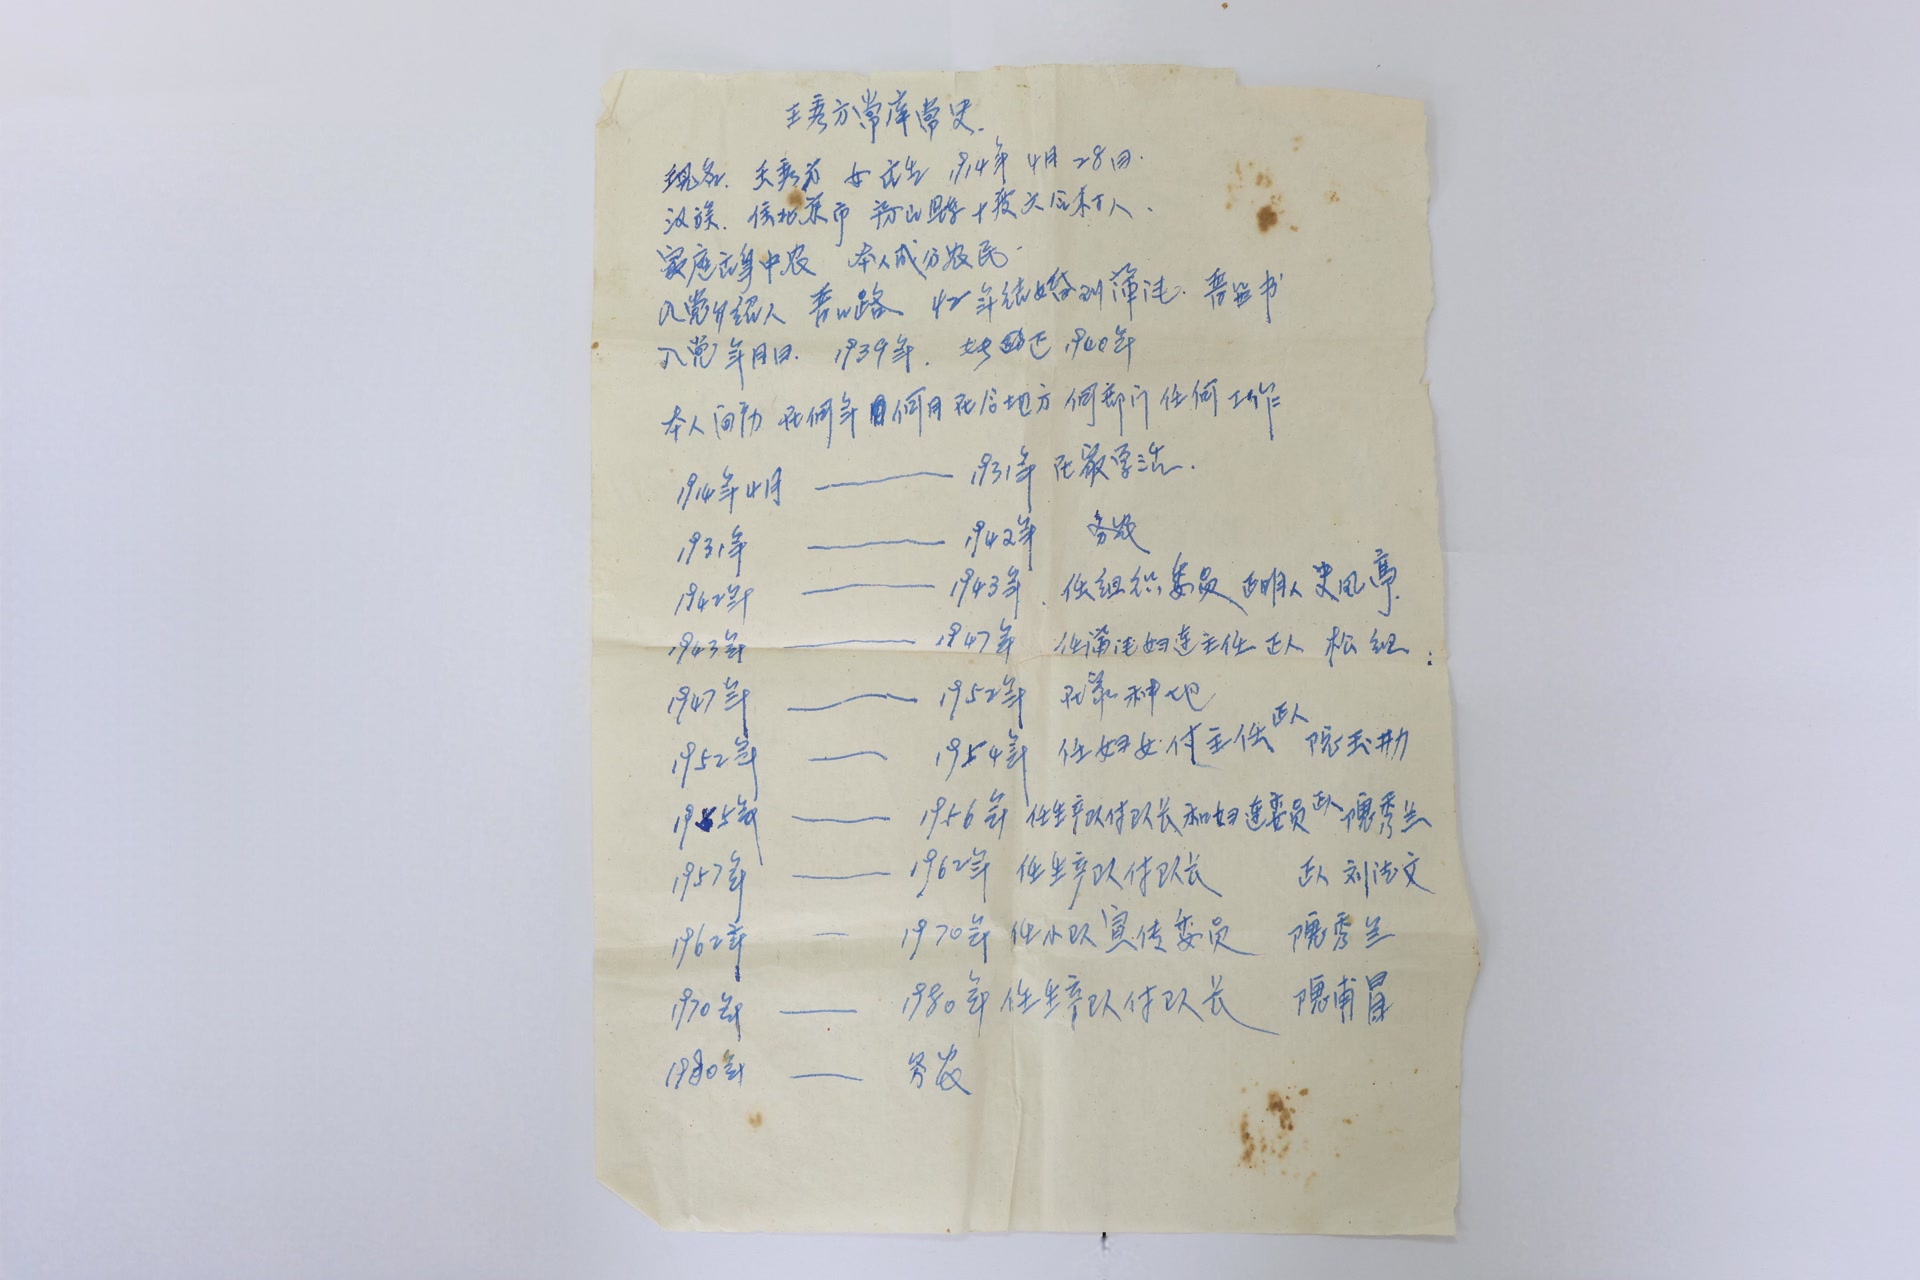 王秀方党
现名. 王秀芳 女 出生 1914年 4月 28日.
汉族. 住北京市 房山县十渡六合村人.
家庭出身中农 本人成分农民.
入党介绍人 42年结婚到蒲洼.
入党年月日. 1939年. 转正 1940年
本人 在何年何月在 地方 何部门 任何 工作
1914年4月 —— 1931年 在家
1931年 —— 1942年 务农
1942年 —— 1943年. 任组织委员 证明人 史凤亭.
1943年 —— 1947年 任蒲洼妇连主任 证人
1947年 —— 1952年 在家种地
1952年 —— 1954年 任妇女付主任 证人 隗玉
1955年 —— 1956年 任生产队付队长和妇连委员 证人 隗秀兰
1957年 —— 1962年 任生产队付队长 证人 刘
1962年 — 1970年 任小队宣传委员 隗秀兰
1970年 —— 1980年 任生产队付队长 隗甫
1980年 —— 务农